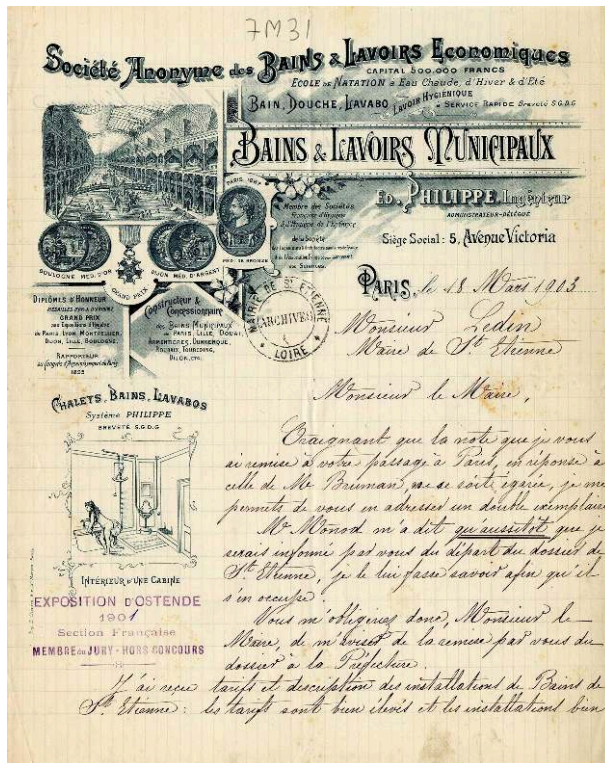 7M31
Société Anonyme des Bains & Lavoirs Economiques
CAPITAL 500.000 FRANCS
ECOLE DE NATATION à Eau Chaude, d'Hiver & d'Eté
BAIN, DOUCHE, LAVABO LAVOIR HYGIÉNIQUE à SERVICE RAPIDE Breveté S.G.D.G
BAINS & LAVOIRS MUNICIPAUX
ED. PHILIPPE, Ingénieur
ADMINISTRATEUR-DÉLÉGUÉ
Siège Social: 5, Avenue Victoria
PARIS 1887
Membre des Sociétés
française d'Hygiène
de la Société
BOULOGNE MÉD. D'OR
GRAND PRIX
DIJON MÉD. D'ARGENT
DIPLÔMES D'HONNEUR
GRAND PRIX
aux Expositions d'Hygiène
de PARIS, LYON, MONTPELLIER,
DIJON, LILLE, BOULOGNE
RAPPORTEUR
1895
Constructeur &
Concessionnaire
des BAINS MUNICIPAUX
de PARIS, LILLE, DOUAI,
ARMENTIÈRES, DUNKERQUE,
ROUBAIX, TOURCOING,
DIJON, ETC.
MAIRIE DE ST ETIENNE
ARCHIVES
LOIRE
PARIS, le 18 Mars 1903
Monsieur Ledin
Maire de St Etienne
Monsieur le Maire,
CHALETS, BAINS, LAVABOS
Système PHILIPPE
BREVETÉ S.G.D.G
INTÉRIEUR D'UNE CABINE
EXPOSITION D'OSTENDE
1901
Section Française
MEMBRE du JURY - HORS CONCOURS
Craignant que la note que je vous
ai remise à votre passage à Paris, en réponse à
celle de Mr Bruman, ne se soit égarée, je me
permets de vous en adresser un double exemplaire
Mr Monod m'a dit qu'aussitôt que je
serais informé par vous du départ du dossier de
St Etienne, je le lui fasse savoir afin qu'il
s'en occupe.
Vous m'obligeriez donc, Monsieur le
Maire, de m'aviser de la remise par vous du
dossier à la Préfecture.
J'ai reçu tarifs et description des installations de Bains de
St Etienne: les tarifs sont bien élevés et les installations bien